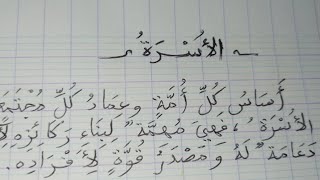 الأُسْرَةُ
أَسَاسُ كُلِّ أُمَّةٍ وعِمَادُ كُلِّ
الأُسْرَةُ، فَهِيَ مُهِمَّةٌ لِبِنَاءِ رَكَائِزِ
دَعَامَةٌ لَهُ وَمَصْدَرُ قُوَّةٍ لِأَفْرَادِهِ.